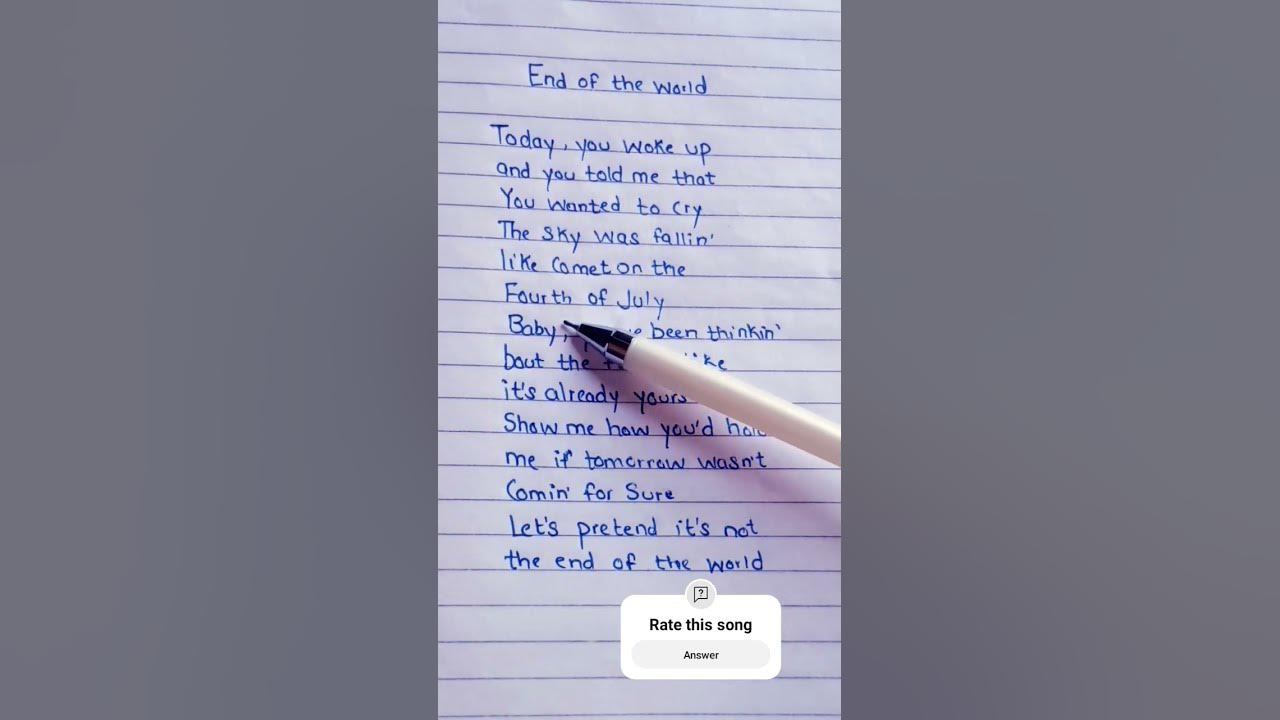 End of the world
Today, you woke up
and you told me that
You wanted to cry
The sky was fallin'
like comet on the
Fourth of July
Baby, been thinkin'
bout the
it's already yours
Show me how you'd
me if tomorrow wasn't
Comin' for Sure
Let's pretend it's not
the end of the world
Rate this song
Answer